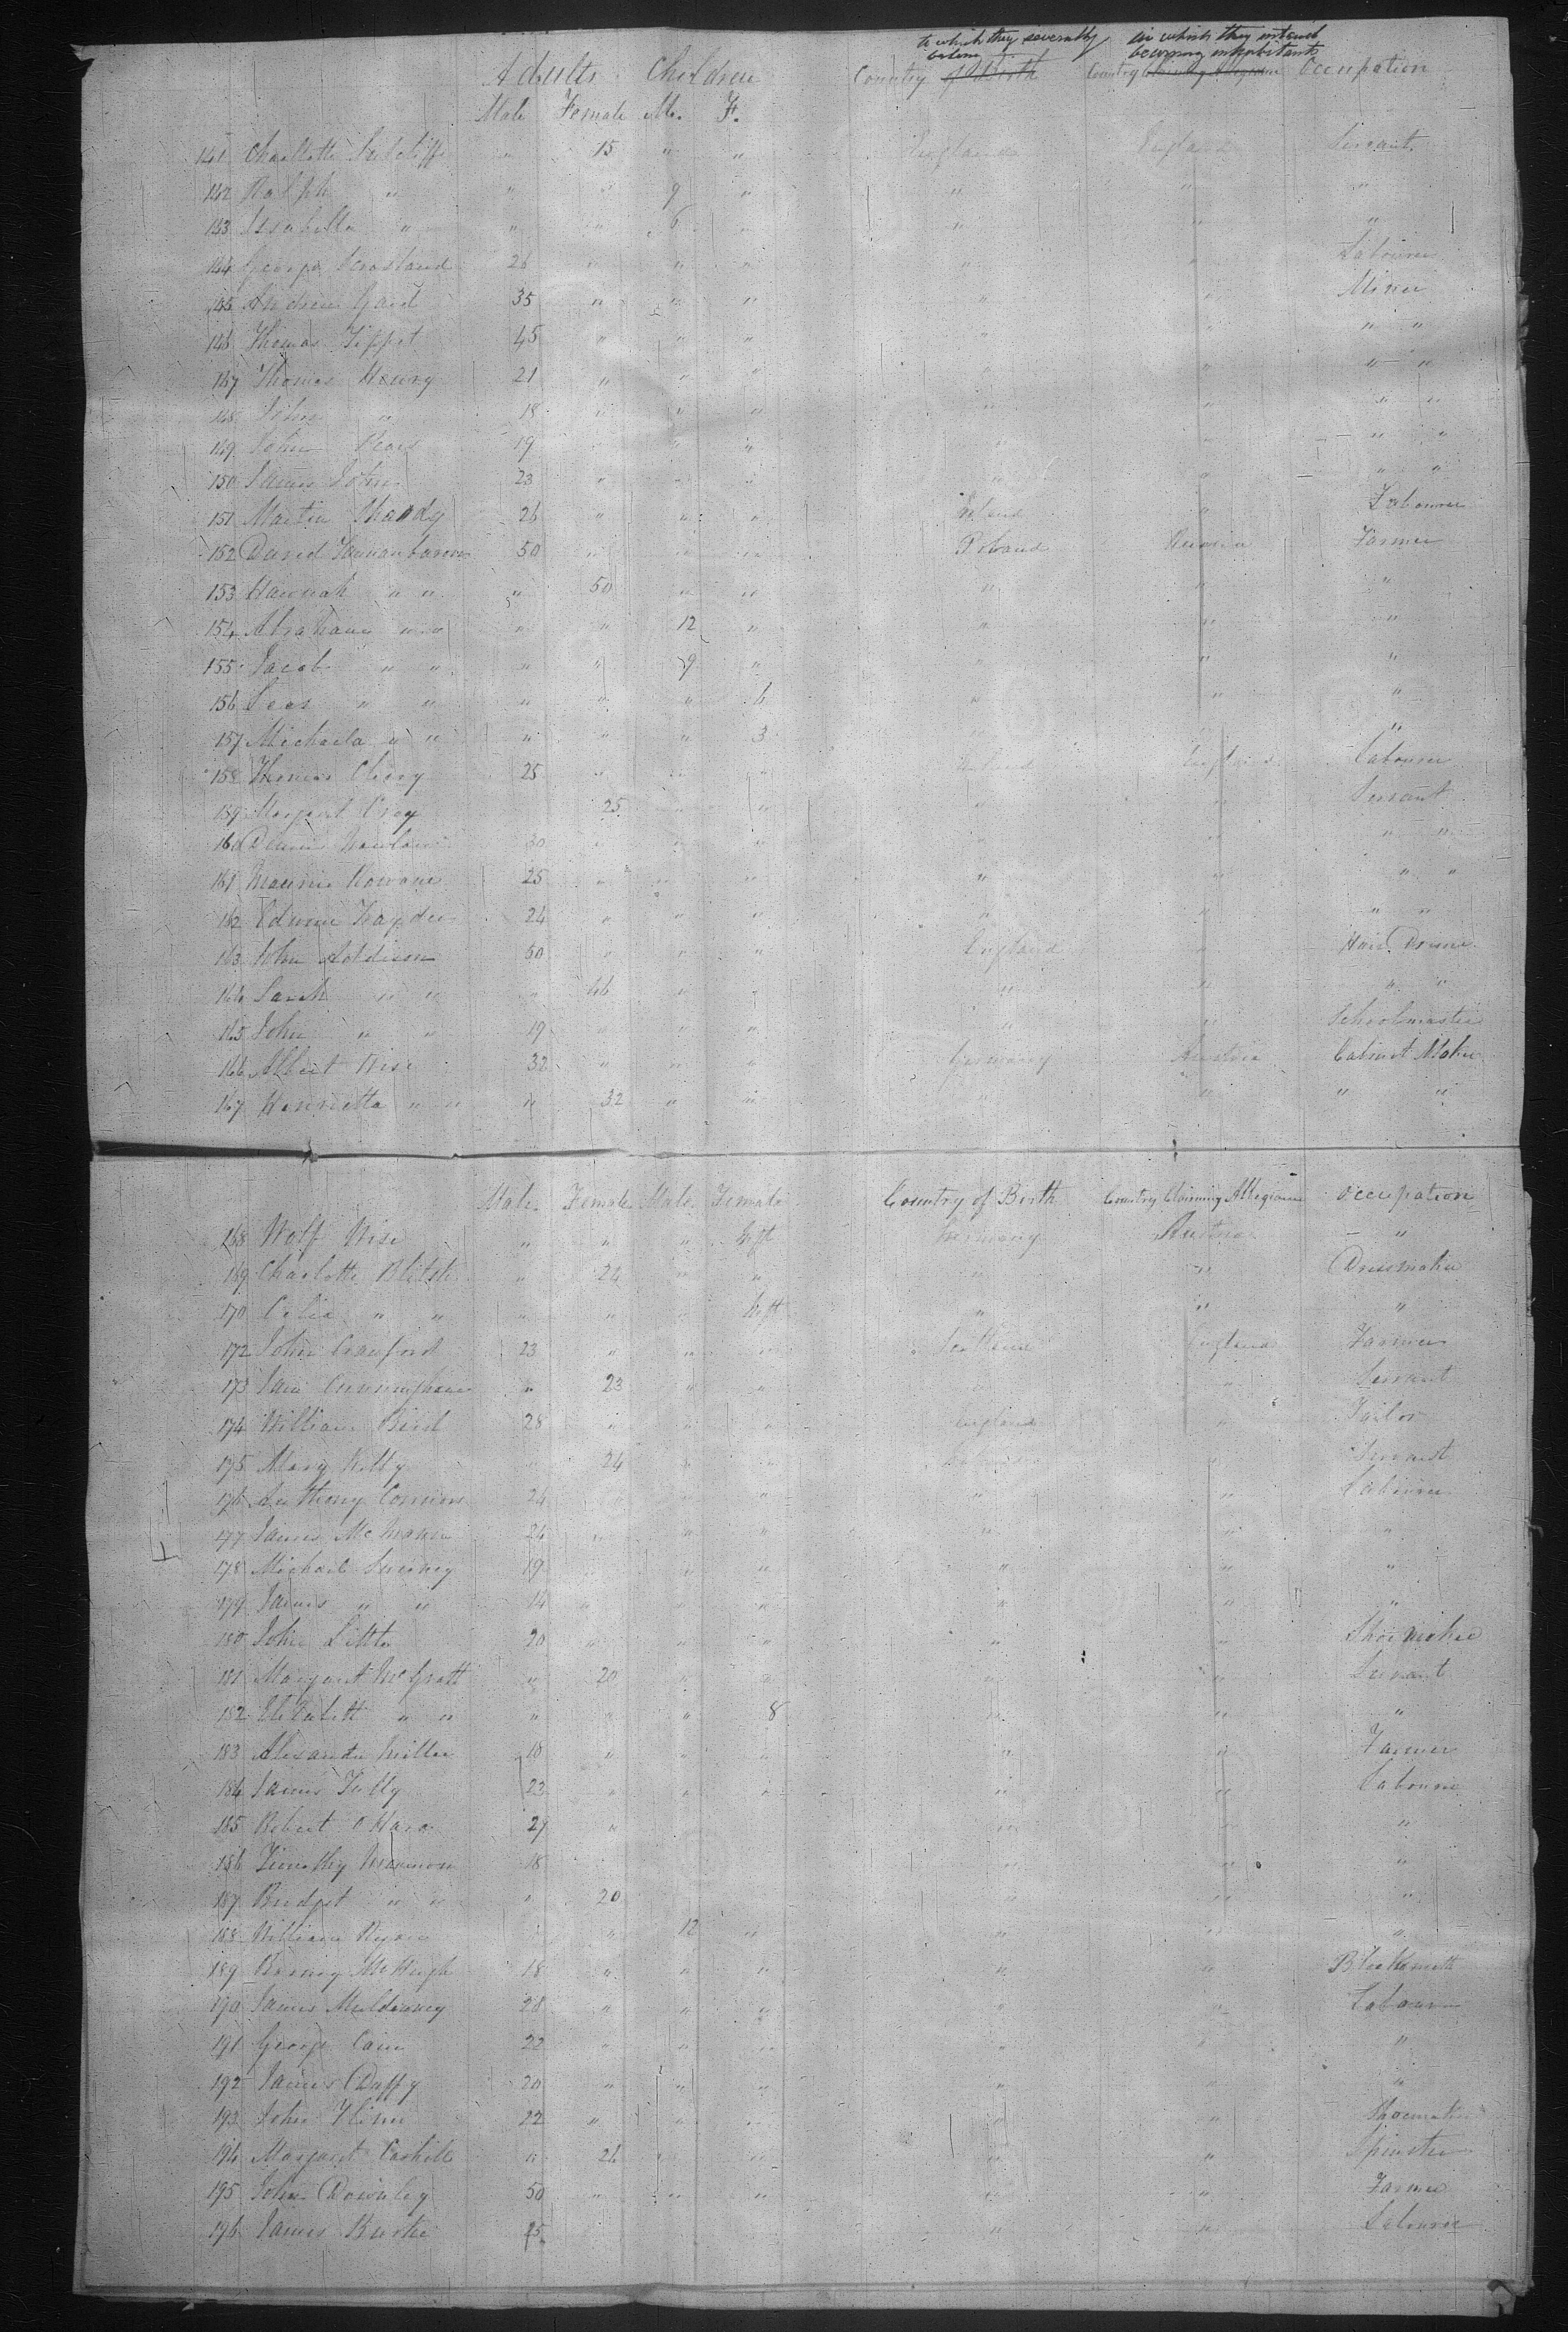 to which they severally in which they intend
belong becoming inhabitants
Adults Children Country of Birth Country Claiming Allegiance Occupation
Male Female M. F.
141 Charlotte Sutcliffe " 15 " " England England Servant
142 Ralph " " " 9 " " " "
143 Issabella " " " 6 " " " "
144 George Crosland 26 " " " " " Labourer
145 Andrew Gard 35 " " " " " Miner
146 Thomas Tippet 45 " " " " " " "
147 Thomas Henry 21 " " " " " " "
148 John " 18 " " " " " " "
149 John 19 " " " " " " "
150 James John 23 " " " " " " "
151 Martin 26 " " " " Labourer
152 David 50 " " " Poland Russia Farmer
153 Hannah " " " 50 " " " " "
154 Abraham " " " " 12 " " " "
155 Jacob " " " " 9 " " " "
156 " " " " " " " "
157 Michaela " " " " " 3 " " "
158 Thomas 25 " " " England Labourer
159 Margaret 25 " " " " Servant
160 30 " " " " " " "
161 25 " " " " " " "
162 Hayden 24 " " " " " " "
163 John Addison 50 " " " England " Hair Dresser
164 Sarah " " " 46 " " " " " "
165 John " " 19 " " " " " Schoolmaster
166 Albert Wise 32 " " " Germany Austria Cabinet Maker
167 Henrietta " " " 32 " " " " " "
Male Female Male Female Country of Birth Country Claiming Allegiance Occupation
168 Wolf Wise " " " Inft Germany Austria "
169 Charlotte " 24 " " " " Dressmaker
170 Celia " " " " " Inft " " "
172 John Crauford 23 " " " Scotland England Farmer
173 Jane Cunningham " 23 " " " " Servant
174 William Bird 28 " " " England " Tailor
175 Mary Kelly " 24 " " " Servant
176 Anthony Connors 24 " " " " " Labourer
177 James McMann 24 " " " " " "
178 Michael Sweeney 19 " " " " "
179 James " " 14 " " " " "
180 John Little 20 " " " " " Shoe Maker
181 Margaret McGratt " 20 " " " " Servant
182 Elizabeth " " " " " 8 " " "
183 Alexander Miller 18 " " " " " Farmer
184 James Tully 23 " " " " " Labourer
185 Robert O Hara 27 " " " "
186 Timothy 18 " " "
187 Bridget " " " 20 " " "
188 William Ryan " " 12 " " " "
189 McHugh 18 " " " " " Blacksmith
190 James Muldowney 28 " " " " " Labourer
191 George Cain 22 " " " " " "
192 James Duffy 20 " " " " " "
193 John Flinn 22 " " " " " Shoemaker
194 Margaret " 24 " " " " Spinster
195 John Downley 50 " " " " " Farmer
196 James Burke " " Labourer